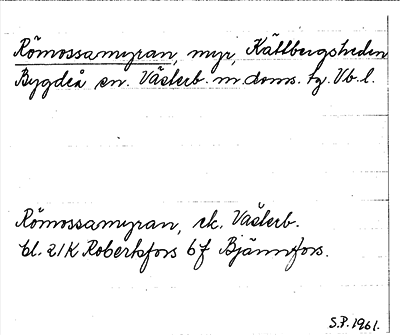 Römossamyran, myr, Källbergsheden
Bygdeå sn. Västerb. m. doms. tg. Vb. l.
Römossamyran, ek. Västerb.
bl. 21K Robertsfors 6 f Bjännfors.
S.P. 1961.